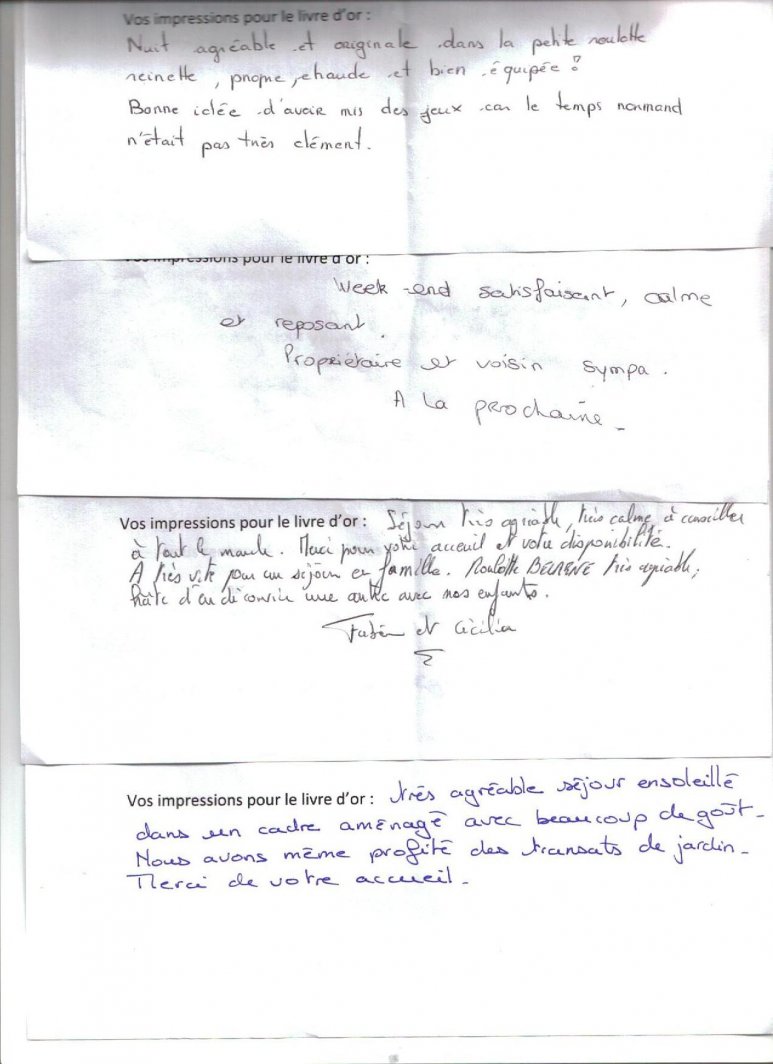 Vos impressions pour le livre d'or :
Nuit agréable et originale dans la petite roulotte
reinette, propre, chaude et bien équipée !
Bonne idée d'avoir mis des jeux car le temps normand
n'était pas très clément.
Vos impressions pour le livre d'or :
Week-end satisfaisant, calme
et reposant.
Propriétaire et voisin sympa.
A la prochaine_
Vos impressions pour le livre d'or : Séjour très agréable, très calme, à conseiller
à tout le monde. Merci pour votre accueil et votre disponibilité.
A très vite pour un séjour en famille. Roulotte très agréable,
hâte d'en découvrir une autre avec nos enfants.
et Cécilia
Vos impressions pour le livre d'or : très agréable séjour ensoleillé
dans un cadre aménagé avec beaucoup de goût_
Nous avons même profité des transats de jardin_
Merci de votre accueil_